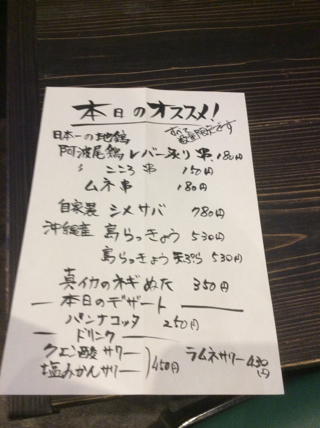 本日のオススメ!
すべて数量限定です
日本一の地鶏
阿波尾鶏 レバー炙り串 180円
〃 こころ串 150円
ムネ串 180円
自家製 シメサバ 780円
沖縄産 島らっきょう 530円
島らっきょう天ぷら 530円
真イカのネギぬた 350円
本日のデザート
パンナコッタ 250円
ドリンク
クエン酸サワー
塩みかんサワー 450円
ラムネサワー 430円